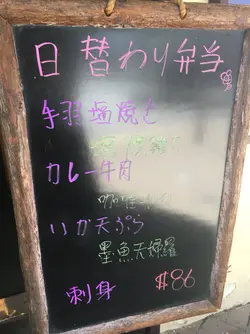 日替わり弁当
手羽塩焼き
カレー牛肉
咖喱
いか天ぷら
墨魚天婦羅
刺身 $86